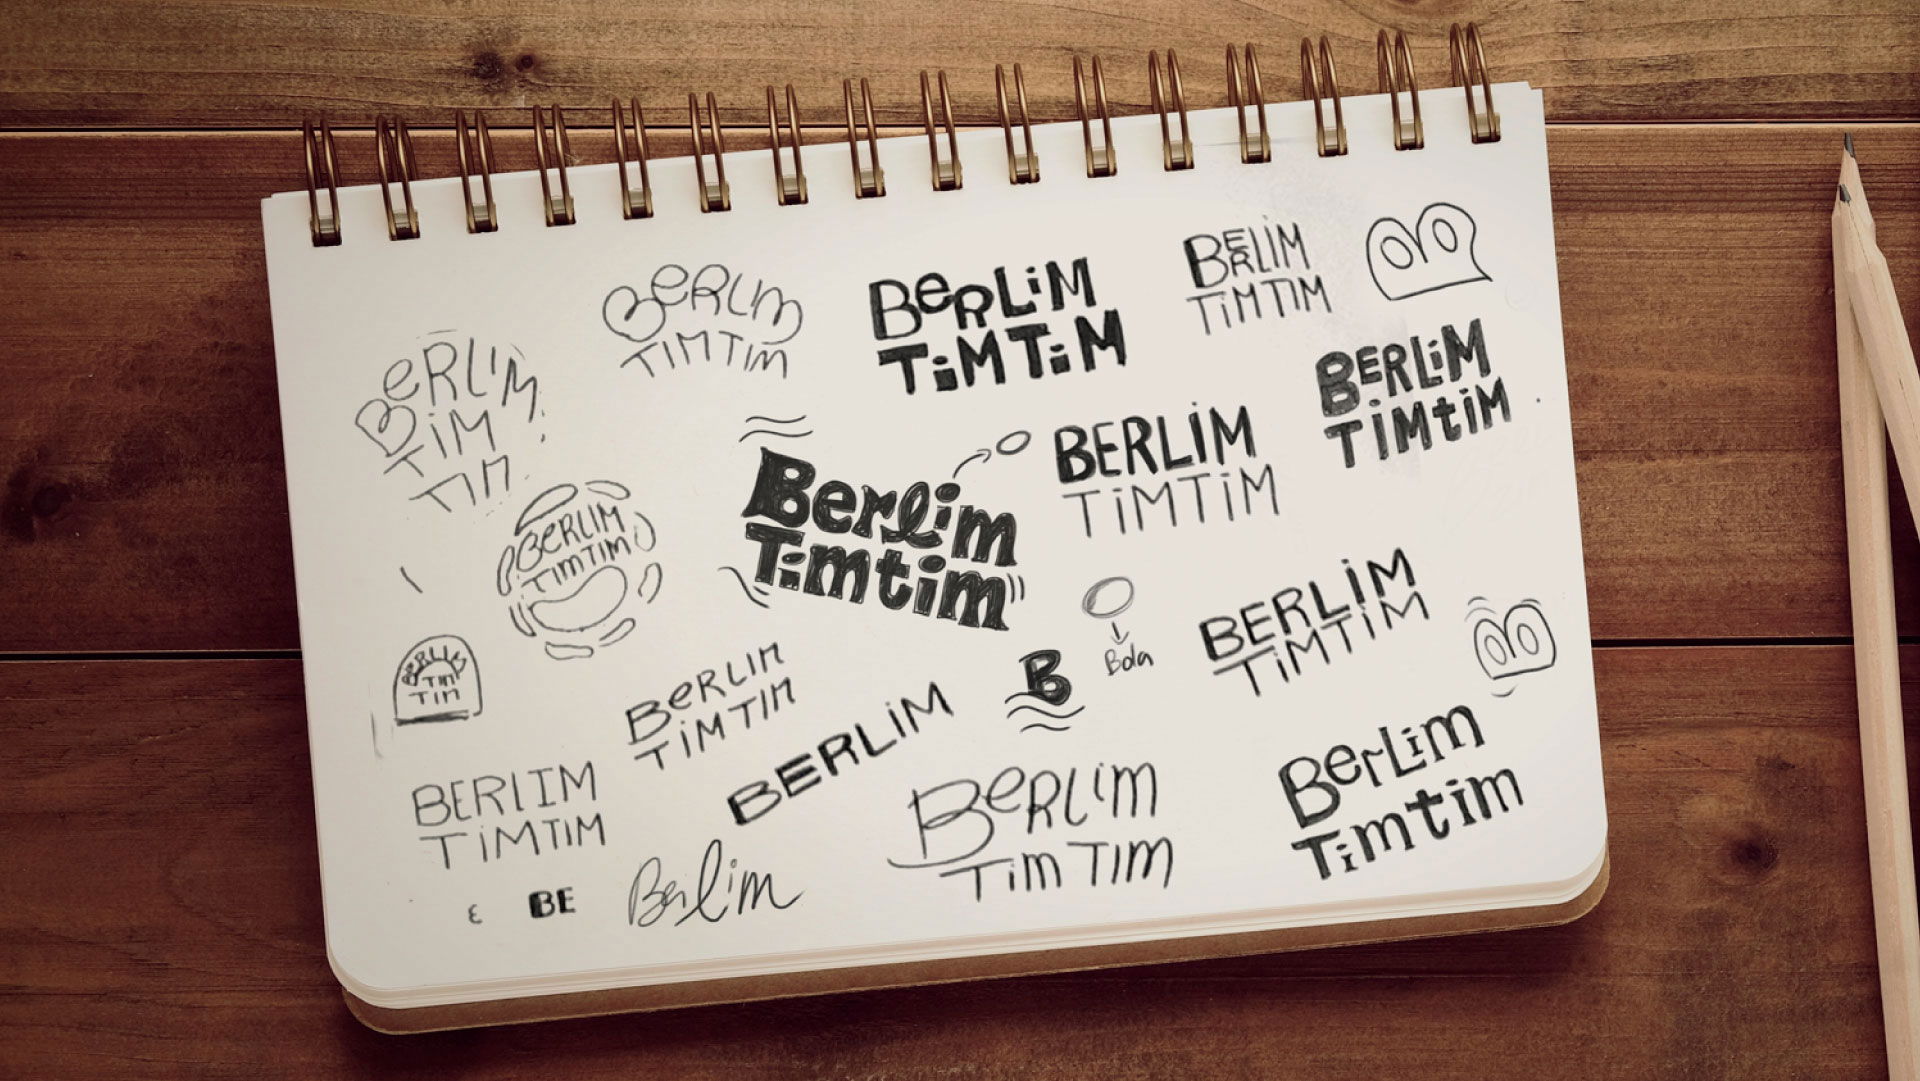 BeRLIM
TIMTIM
BeRLiM
TiMTiM
BERLIM
TiMTIM
BeRLIM
TIM
TIM
BERLiM
TiMtiM
BERLIM
TiMTiM
Berlim
Timtim
BERLIM
TIMTIM
Bola
BERLIM
TiMTiM
BERLIM
TIM
TIM
BeRLIM
TiMTIM
BERLiM
BERLIM
TiMTIM
BeRLim
Tim TIM
Berlim
Timtim
ε
BE
Berlim
B